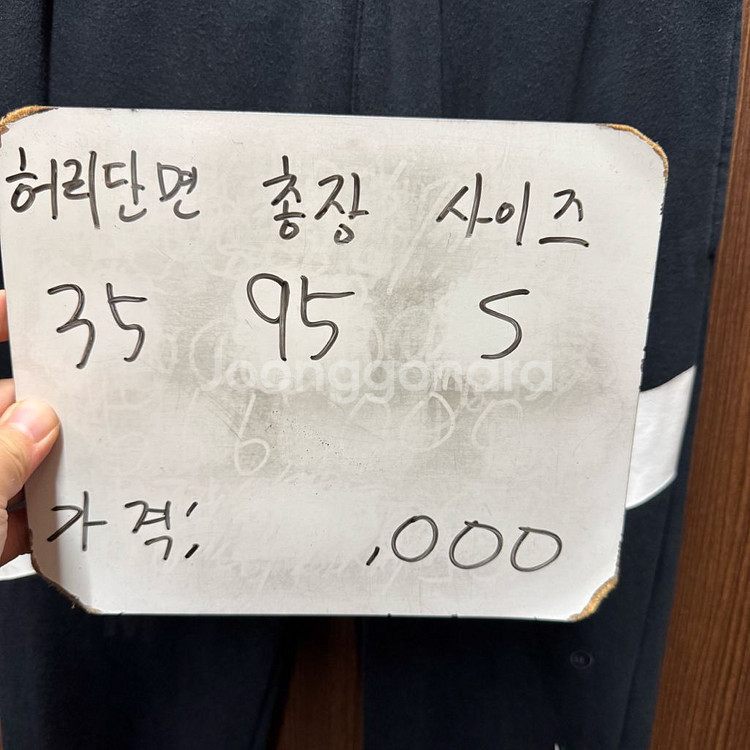 허리단면 총장 사이즈
35 95 S
Joonggonara
가격; ,000